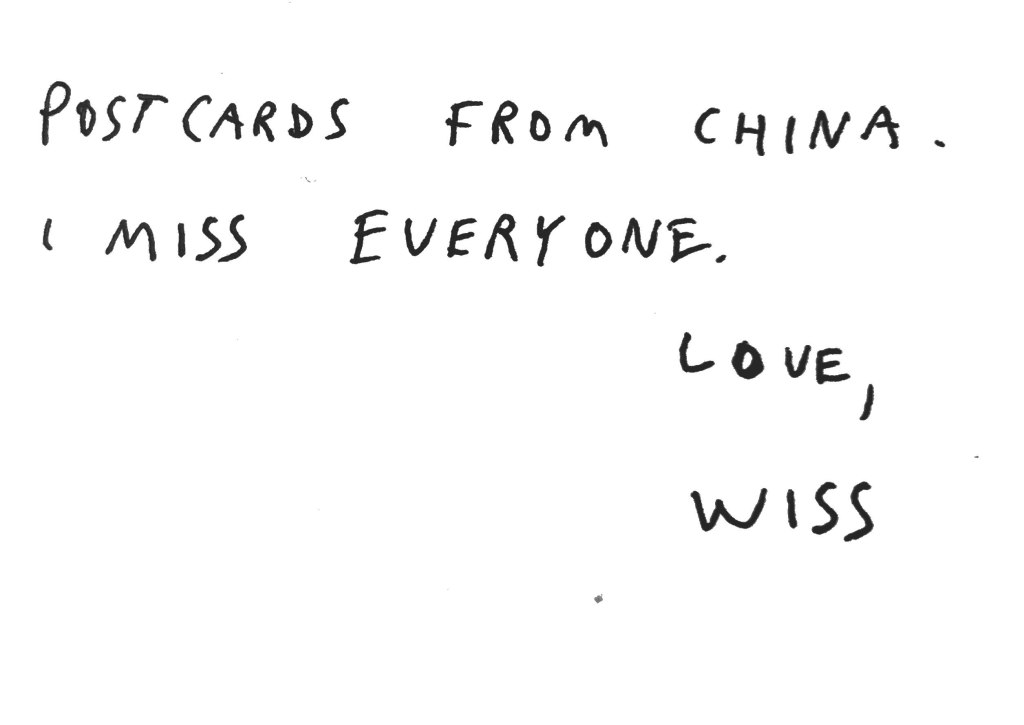 POSTCARDS FROM CHINA.
I MISS EVERYONE.
LOVE,
WISS